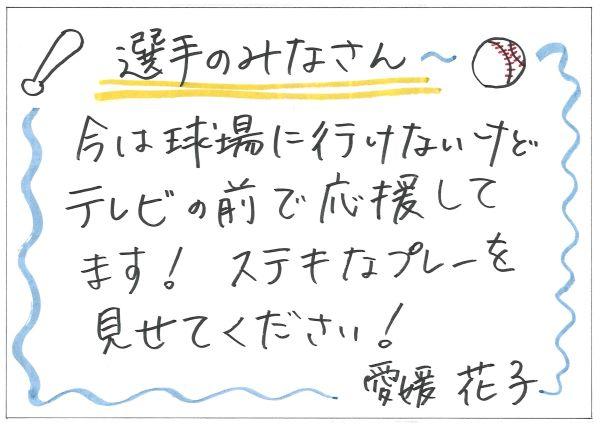 選手のみなさん〜
今は球場に行けないけど
テレビの前で応援して
ます！ ステキなプレーを
見せてください！
愛媛 花子